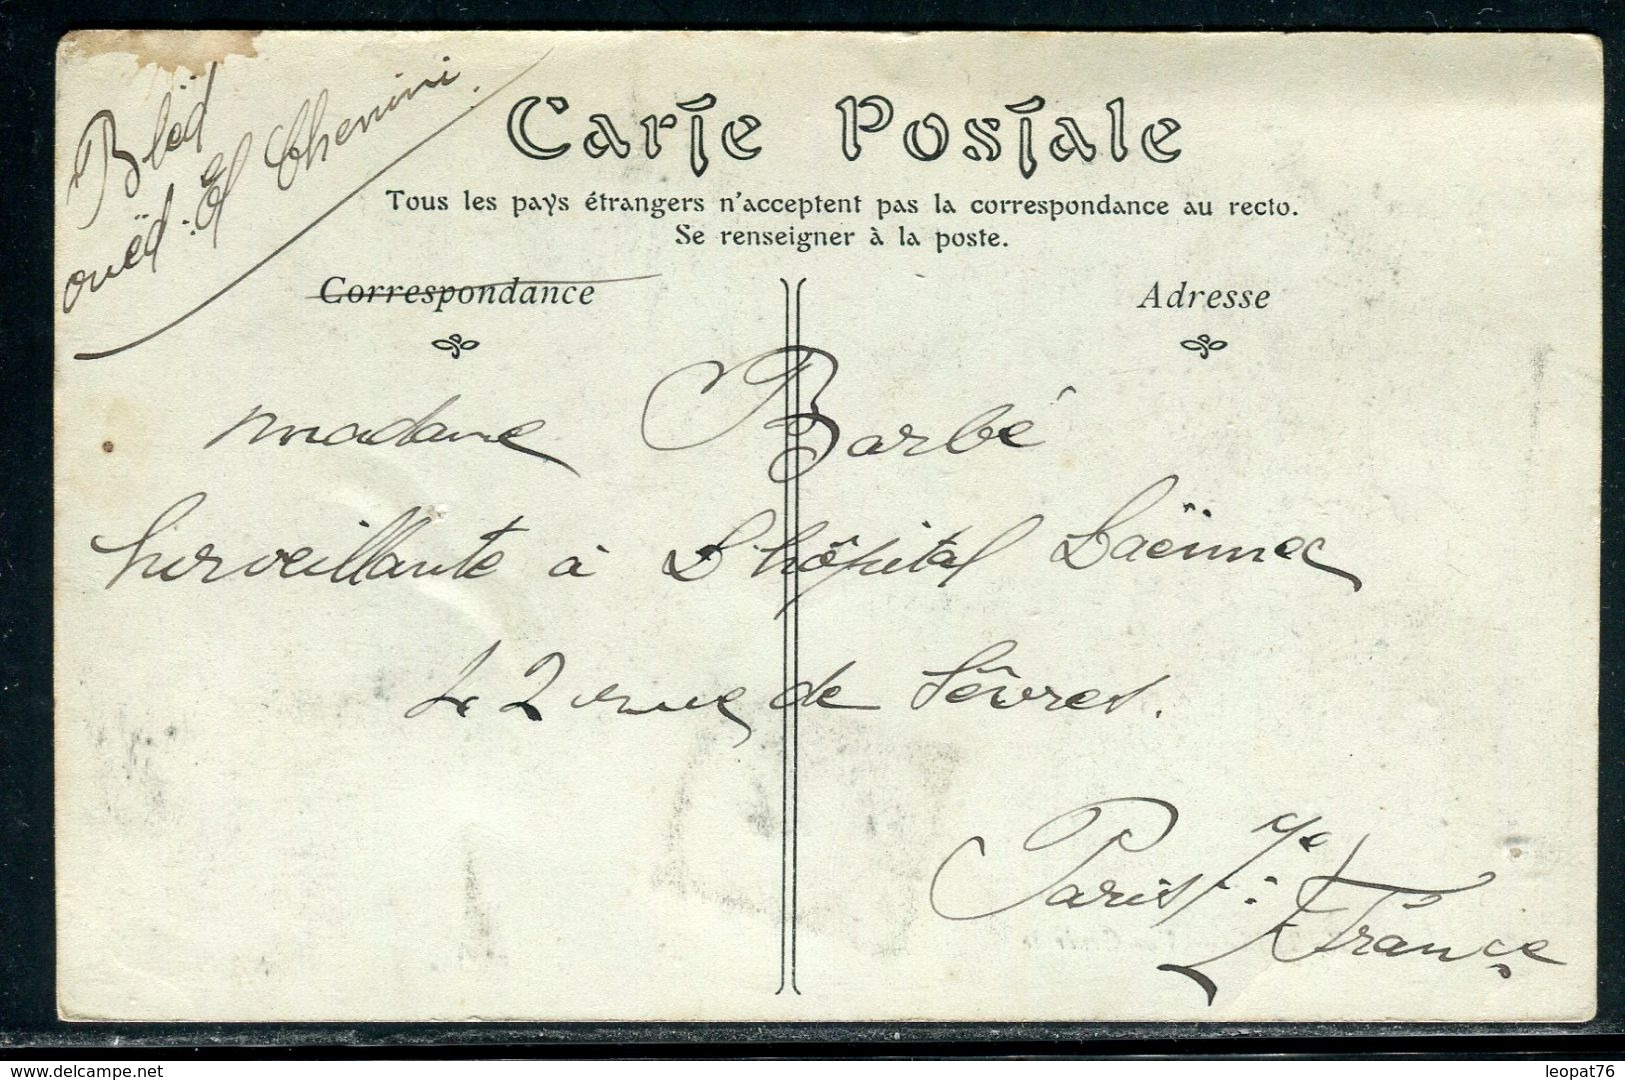 Blëd
ouëd. El Chenini.
Carte Postale
Tous les pays étrangers n'acceptent pas la correspondance au recto.
Se renseigner à la poste.
Correspondance
Adresse
Madame Barbé
Surveillante à L'hôpital Laënnec
42 rue de Sèvres.
Paris 7e
France
leopat76
delcampe.net